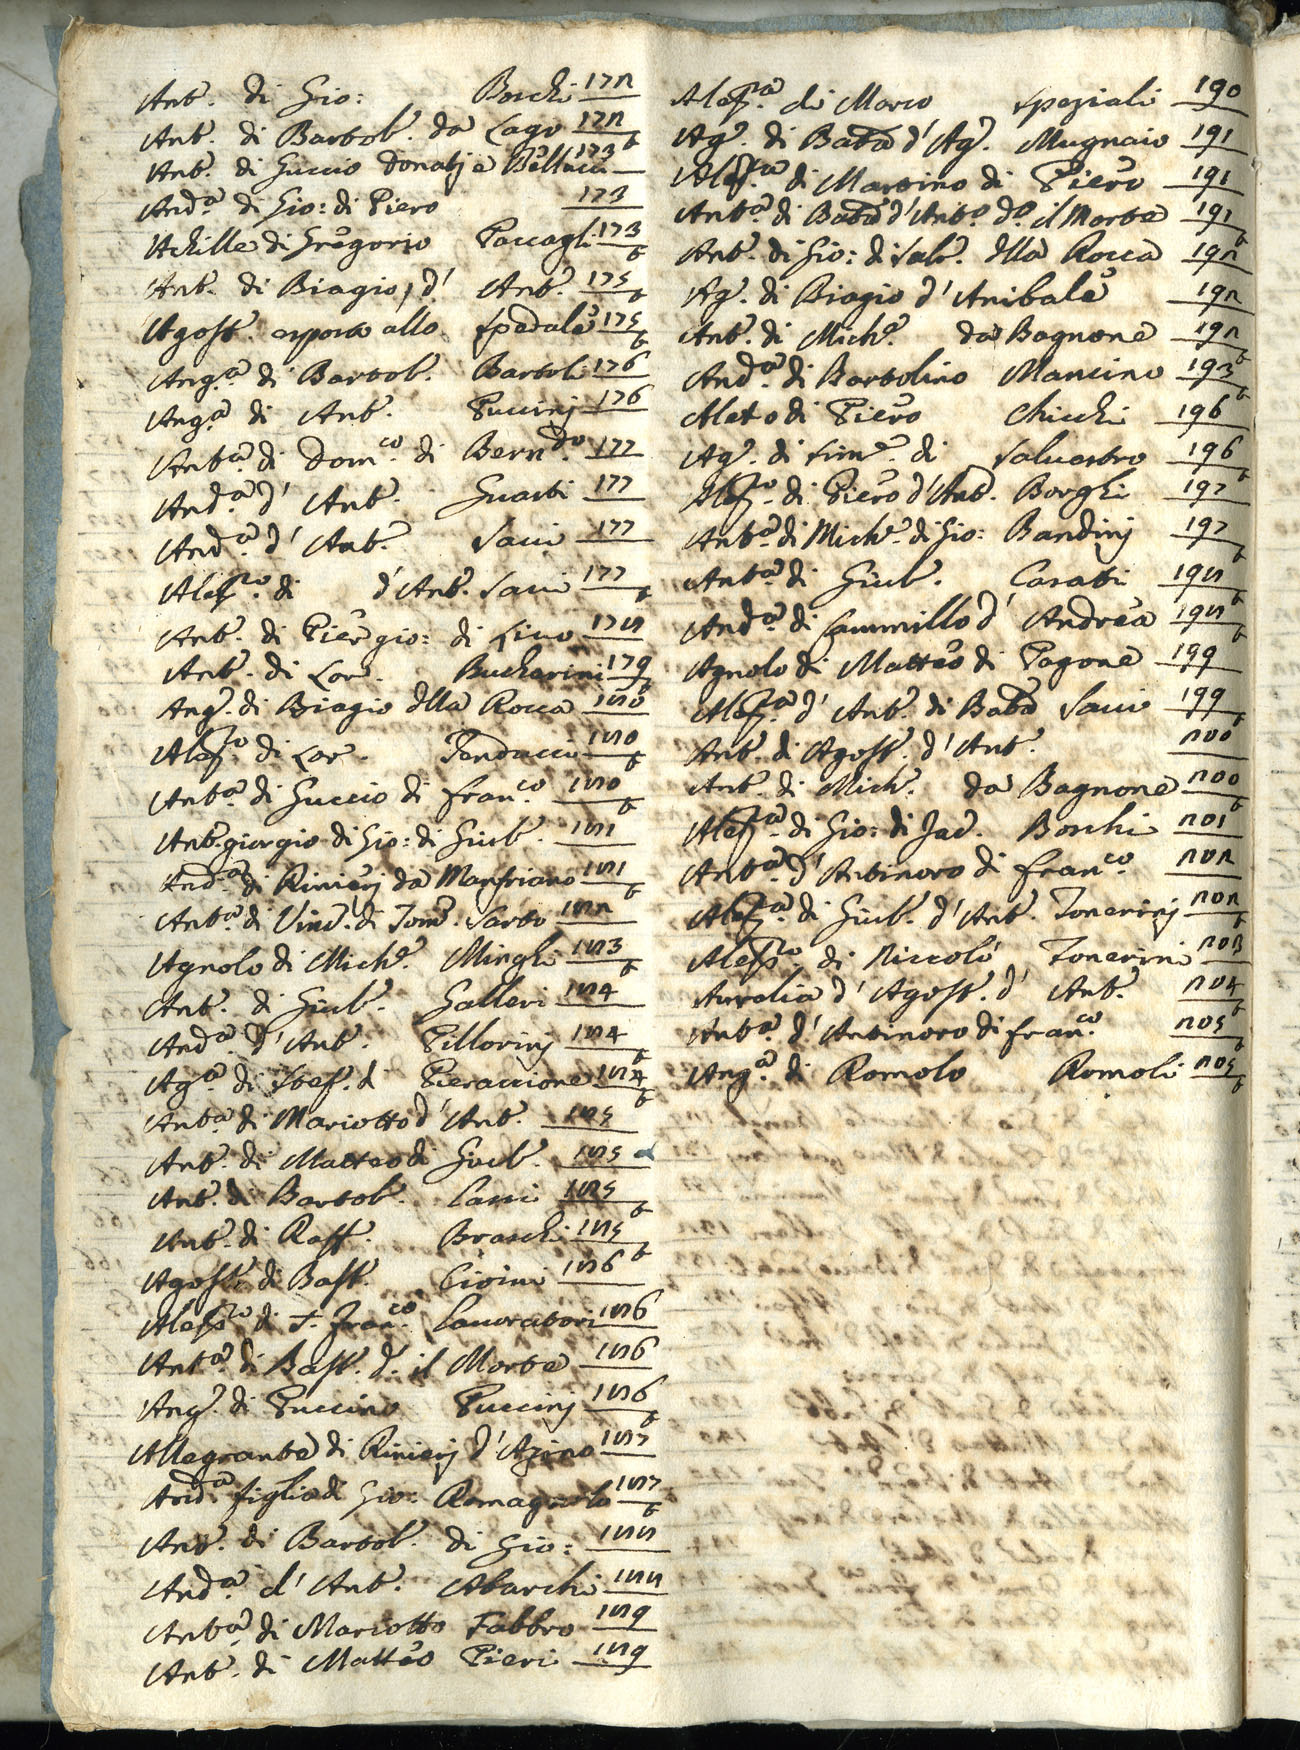 Ant.º di Gio: Boschi 172
Ant.º di Bartol.º da Lago 172 t
Ant.º di Guccio Donati e Bellucci 173
And.ª di Gio: di Piero 173
Achille di Gregorio Paccagli 173 t
Ant.º di Biagio, d' Ant.º 175 t
Agost.º esposto allo Spedale 175 t
Ang.ª di Bartol.º Bartoli 176
Ang.ª di Ant.º Puccinj 176
Ant.ª di Dom.co di Bern.do 177
And.ª d' Ant.º Guasti 177
And.ª d' Ant.º Savi 177
Aless.ro di d' Ant.º Savi 177 t
Ant.º di Piergio: di Lino 178
Ant.º di Lor.º Bucherini 179
Ang.º di Biagio dlla Rocca 180
Aless.ro di Lor.º Tenducci 180 t
Ant.ª di Guccio di Fran.co 180 t
Ant.giorgio di Gio: di Giul.º 181
And.ª di Rinierj da Monfriano 181 t
Ant.ª di Vinc.º di Tom.º Sarto 182
Agnolo di Mich.e Minghi 183 t
Ant.º di Giul.º Galleri 184
And.ª d' Ant.º Pillorinj 184 t
Ag.ª di Stef.º d Pieraccione 184 t
Ant.ª di Mariotto d' Ant.º 185
Ant.º di Matteo di Giul.º 185
Ant.º di Bartol.º Cassi 185 t
Ant.º di Raff.º Braschi 185 t
Agost.º di Bast.º Civini 186
Aless.ro di S. Fran.co Lavoratori 186
Ant.ª di Bast.º d.º il Morte 186
Ang.º di Puccino Puccinj 186 t
Allegrante di Rinierj d' Azino 187
And.ª figlia di Gio: Romagnolo 187 t
Ant.º di Bartol.º di Gio: 188
And.ª d' Ant.º Abarchi 188
Ant.ª di Mariotto Fabbro 189
Ant.º di Matteo Pieri 189
Aless.ª di Marco Speziali 190
Ag.º di Bab.ª d' Ag.º Mugnaio 191
Aless.ª di Martino di Piero 191
Ant.ª di Bab.ª d' Ant.º d.º il Morte 191 t
Ant.º di Gio: di Salv.º dlla Rocca 192
Ag.º di Biagio d' Anibale 192
Ant.º di Mich.e da Bagnone 192 t
And.ª di Bartolino Mancino 193 t
Aleto di Piero Chicchi 196
Ag.º di Sim.e di Salvestro 196 t
Aless.ro di Piero d' Ant.º Borghi 197
Ant.ª di Mich.e di Gio: Bandinj 197 t
Ant.ª di Giul.º Casati 198 t
And.ª di Cammillo d' Andrea 198 t
Agnolo di Matteo di Pagone 199
Aless.ª d' Ant.º di Bab.ª Savi 199 t
Ant.º di Agost.º d' Ant.º 200
Ant.º di Mich.e da Bagnone 200 t
Aless.ª di Gio: di Jac.º Boschi 201
Ant.ª d' Antinoro di Fran.co 202
Aless.ª di Giul.º d' Ant.º Tonerinj 202 t
Aless.ro di Niccolò Tonerini 203
Aurelia d' Agost.º d' Ant.º 204 t
Ant.ª d' Antinoro di Fran.co 205 t
Ang.ª di Romolo Romoli 205 t